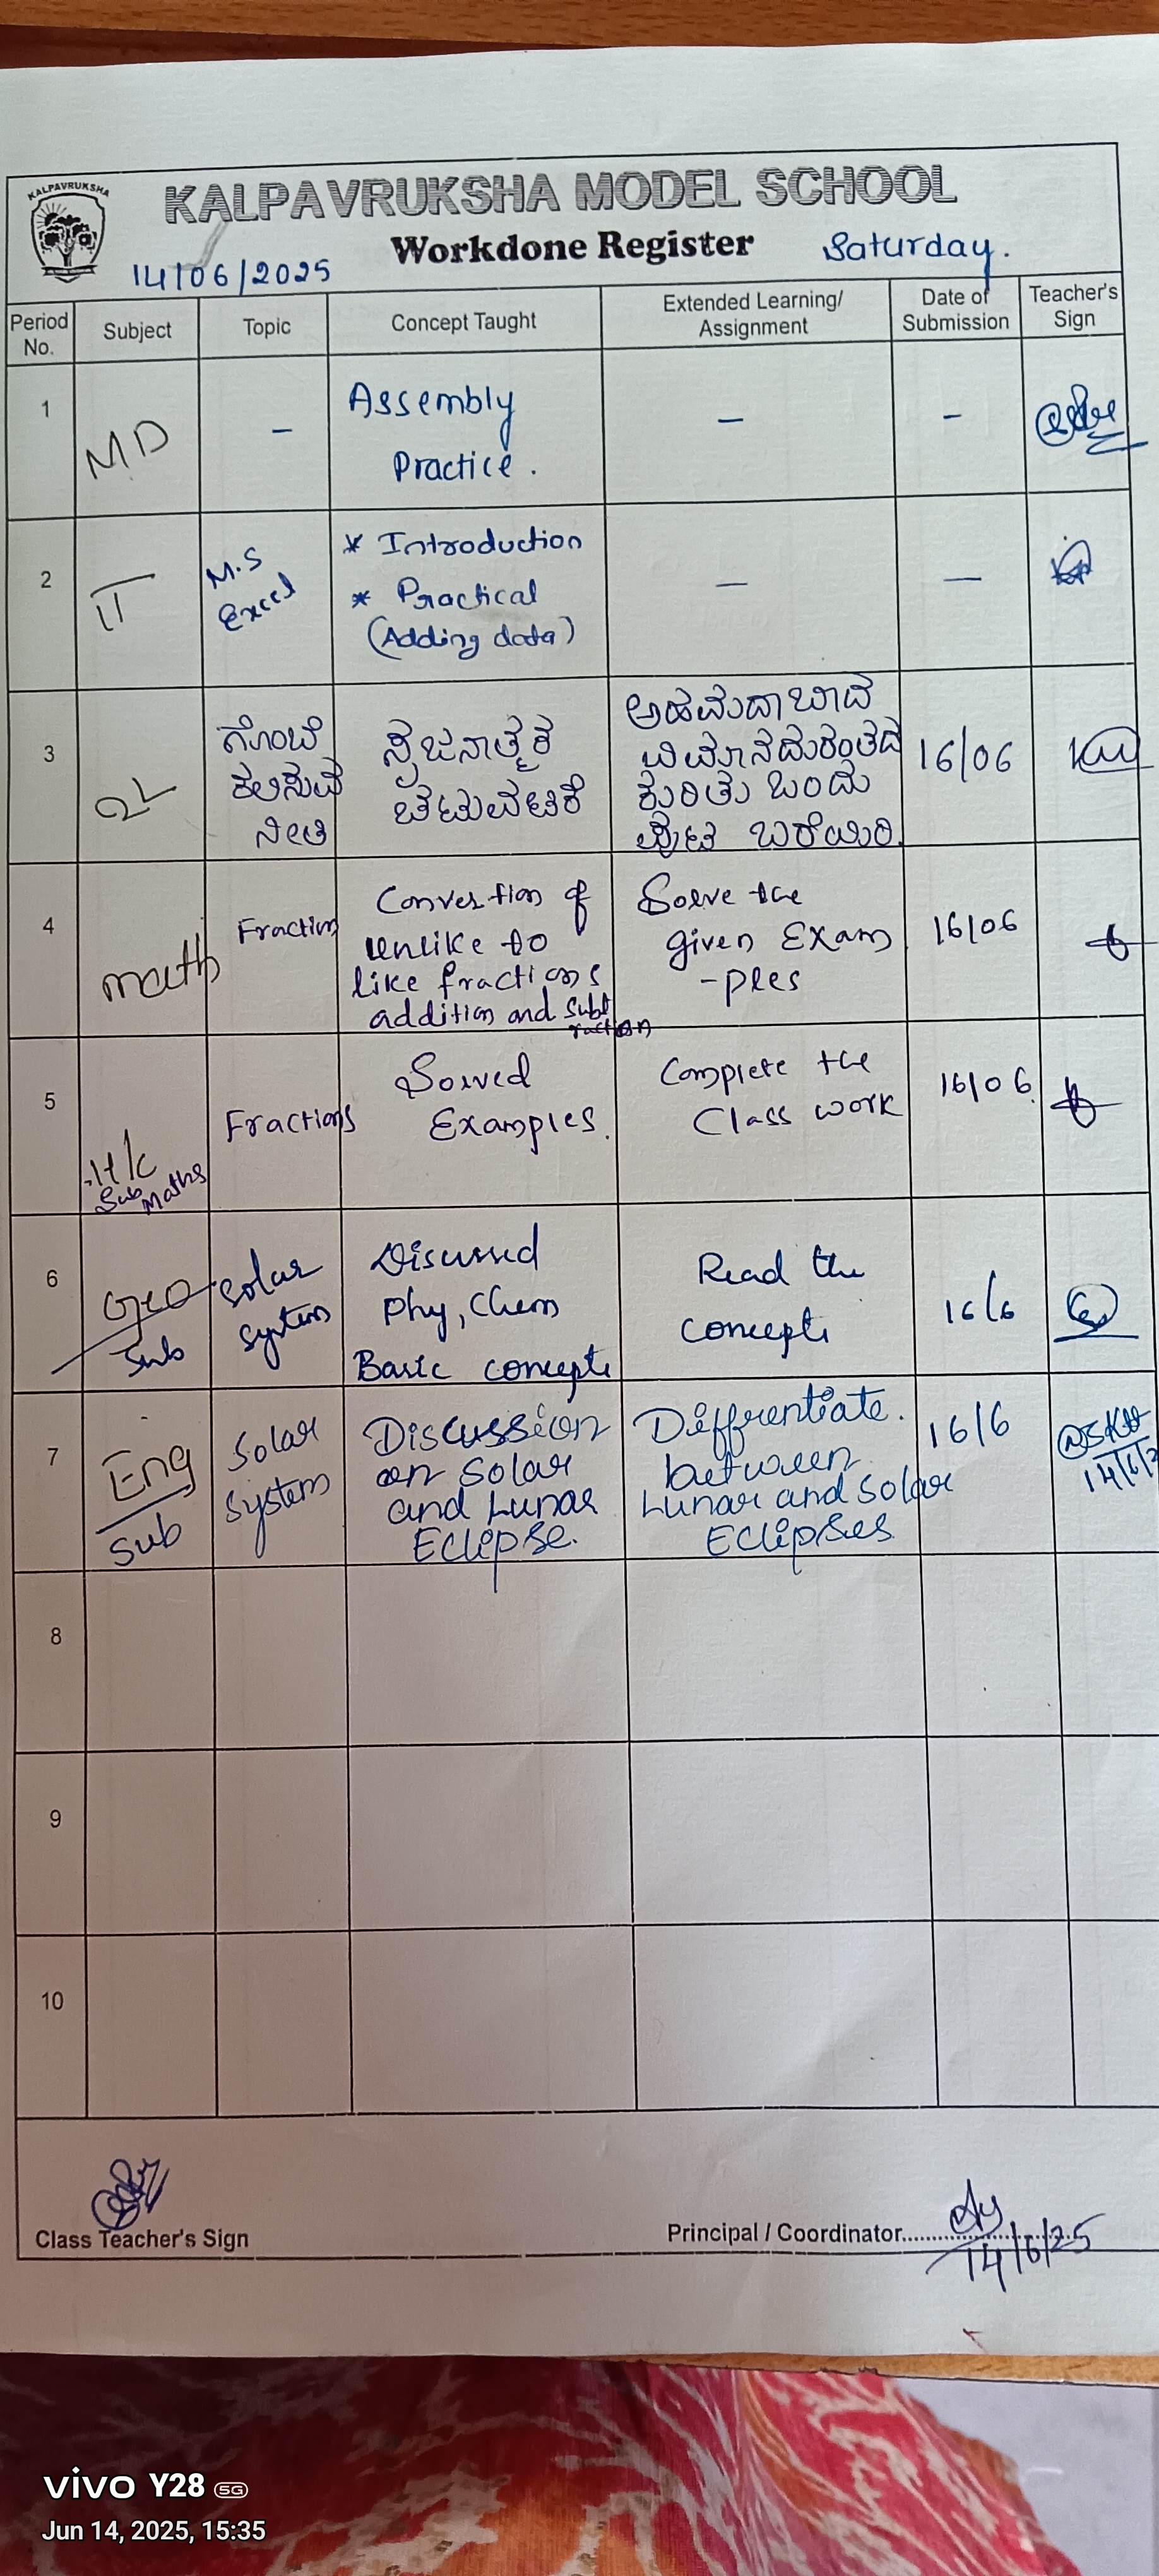 KALPAVRUKSHA
KALPAVRUKSHA MODEL SCHOOL
Workdone Register
Saturday.
14/06/2025
Period No.
Subject
Topic
Concept Taught
Extended Learning/
Assignment
Date of
Submission
Teacher's
Sign
1
MD
-
Assembly
Practice.
-
-
2
IT
M.S
Excel
* Introduction
* Practical
(Adding data)
-
-
3
2L
ಗೊಂಬೆ
ಕಲಿಸುವ
ನೀತಿ
ಸೃಜನಾತ್ಮಕ
ಚಟುವಟಿಕೆ
ಅಹಮದಾಬಾದ
ವಿಮಾನದುರಂತದ
ಕುರಿತು ಒಂದು
ಬರೆಯಿರಿ.
16/06
4
math
Fraction
Conversion of
unlike to
like fractions
addition and subt
raction
Solve the
given Exam
-ples
16/06
5
H/c
Sub Maths
Fractions
Solved
Examples.
Complete the
Class work
16/06.
6
Geo
Sub
Solar
System
Discussed
Phy, Chem
Basic concepts
Read the
concepts
16/6
7
Eng
Sub
Solar
System
Discussion
on Solar
and Lunar
Eclipse.
Diffrentiate.
between
Lunar and Solar
Eclipses
16/6
8
9
10
Class Teacher's Sign
Principal / Coordinator
14/6/25
vivo Y28 5G
Jun 14, 2025, 15:35